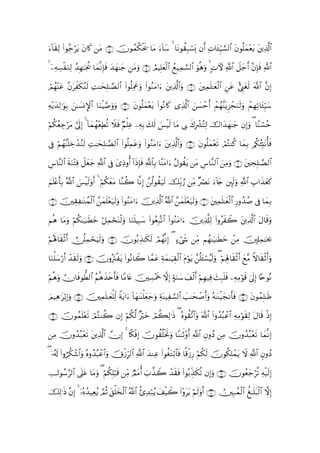 ٱلَّذِينَ يَعْمَلُونَ ٱلسَّيِّـَٔاتِ أَن يَسْبِقُونَا ۚ سَآءَ مَا يَحْكُمُونَ ۝ مَن كَانَ يَرْجُوا۟ لِقَآءَ
ٱللَّهِ فَإِنَّ أَجَلَ ٱللَّهِ لَـَٔاتٍ ۚ وَهُوَ ٱلسَّمِيعُ ٱلْعَلِيمُ ۝ وَمَن جَـٰهَدَ فَإِنَّمَا يُجَـٰهِدُ لِنَفْسِهِۦٓ ۚ
إِنَّ ٱللَّهَ لَغَنِىٌّ عَنِ ٱلْعَـٰلَمِينَ ۝ وَٱلَّذِينَ ءَامَنُوا۟ وَعَمِلُوا۟ ٱلصَّـٰلِحَـٰتِ لَنُكَفِّرَنَّ عَنْهُمْ
سَيِّـَٔاتِهِمْ وَلَنَجْزِيَنَّهُمْ أَحْسَنَ ٱلَّذِى كَانُوا۟ يَعْمَلُونَ ۝ وَوَصَّيْنَا ٱلْإِنسَـٰنَ بِوَٰلِدَيْهِ
حُسْنًا ۖ وَإِن جَـٰهَدَاكَ لِتُشْرِكَ بِى مَا لَيْسَ لَكَ بِهِۦ عِلْمٌ فَلَا تُطِعْهُمَآ ۚ إِلَىَّ مَرْجِعُكُمْ
فَأُنَبِّئُكُم بِمَا كُنتُمْ تَعْمَلُونَ ۝ وَٱلَّذِينَ ءَامَنُوا۟ وَعَمِلُوا۟ ٱلصَّـٰلِحَـٰتِ لَنُدْخِلَنَّهُمْ فِى
ٱلصَّـٰلِحِينَ ۝ وَمِنَ ٱلنَّاسِ مَن يَقُولُ ءَامَنَّا بِٱللَّهِ فَإِذَآ أُوذِىَ فِى ٱللَّهِ جَعَلَ فِتْنَةَ ٱلنَّاسِ
كَعَذَابِ ٱللَّهِ وَلَئِن جَآءَ نَصْرٌ مِّن رَّبِّكَ لَيَقُولُنَّ إِنَّا كُنَّا مَعَكُمْ ۚ أَوَلَيْسَ ٱللَّهُ بِأَعْلَمَ
بِمَا فِى صُدُورِ ٱلْعَـٰلَمِينَ ۝ وَلَيَعْلَمَنَّ ٱللَّهُ ٱلَّذِينَ ءَامَنُوا۟ وَلَيَعْلَمَنَّ ٱلْمُنَـٰفِقِينَ ۝
وَقَالَ ٱلَّذِينَ كَفَرُوا۟ لِلَّذِينَ ءَامَنُوا۟ ٱتَّبِعُوا۟ سَبِيلَنَا وَلْنَحْمِلْ خَطَـٰيَـٰكُمْ وَمَا هُم
بِحَـٰمِلِينَ مِنْ خَطَـٰيَـٰهُم مِّن شَىْءٍ ۖ إِنَّهُمْ لَكَـٰذِبُونَ ۝ وَلَيَحْمِلُنَّ أَثْقَالَهُمْ
وَأَثْقَالًا مَّعَ أَثْقَالِهِمْ ۖ وَلَيُسْـَٔلُنَّ يَوْمَ ٱلْقِيَـٰمَةِ عَمَّا كَانُوا۟ يَفْتَرُونَ ۝ وَلَقَدْ أَرْسَلْنَا
نُوحًا إِلَىٰ قَوْمِهِۦ فَلَبِثَ فِيهِمْ أَلْفَ سَنَةٍ إِلَّا خَمْسِينَ عَامًا فَأَخَذَهُمُ ٱلطُّوفَانُ وَهُمْ
ظَـٰلِمُونَ ۝ فَأَنجَيْنَـٰهُ وَأَصْحَـٰبَ ٱلسَّفِينَةِ وَجَعَلْنَـٰهَآ ءَايَةً لِّلْعَـٰلَمِينَ ۝ وَإِبْرَٰهِيمَ
إِذْ قَالَ لِقَوْمِهِ ٱعْبُدُوا۟ ٱللَّهَ وَٱتَّقُوهُ ۖ ذَٰلِكُمْ خَيْرٌ لَّكُمْ إِن كُنتُمْ تَعْلَمُونَ ۝
إِنَّمَا تَعْبُدُونَ مِن دُونِ ٱللَّهِ أَوْثَـٰنًا وَتَخْلُقُونَ إِفْكًا ۚ إِنَّ ٱلَّذِينَ تَعْبُدُونَ مِن
دُونِ ٱللَّهِ لَا يَمْلِكُونَ لَكُمْ رِزْقًا فَٱبْتَغُوا۟ عِندَ ٱللَّهِ ٱلرِّزْقَ وَٱعْبُدُوهُ وَٱشْكُرُوا۟ لَهُۥٓ ۖ
إِلَيْهِ تُرْجَعُونَ ۝ وَإِن تُكَذِّبُوا۟ فَقَدْ كَذَّبَ أُمَمٌ مِّن قَبْلِكُمْ ۖ وَمَا عَلَى ٱلرَّسُولِ
إِلَّا ٱلْبَلَـٰغُ ٱلْمُبِينُ ۝ أَوَلَمْ يَرَوْا۟ كَيْفَ يُبْدِئُ ٱللَّهُ ٱلْخَلْقَ ثُمَّ يُعِيدُهُۥٓ ۚ إِنَّ ذَٰلِكَ